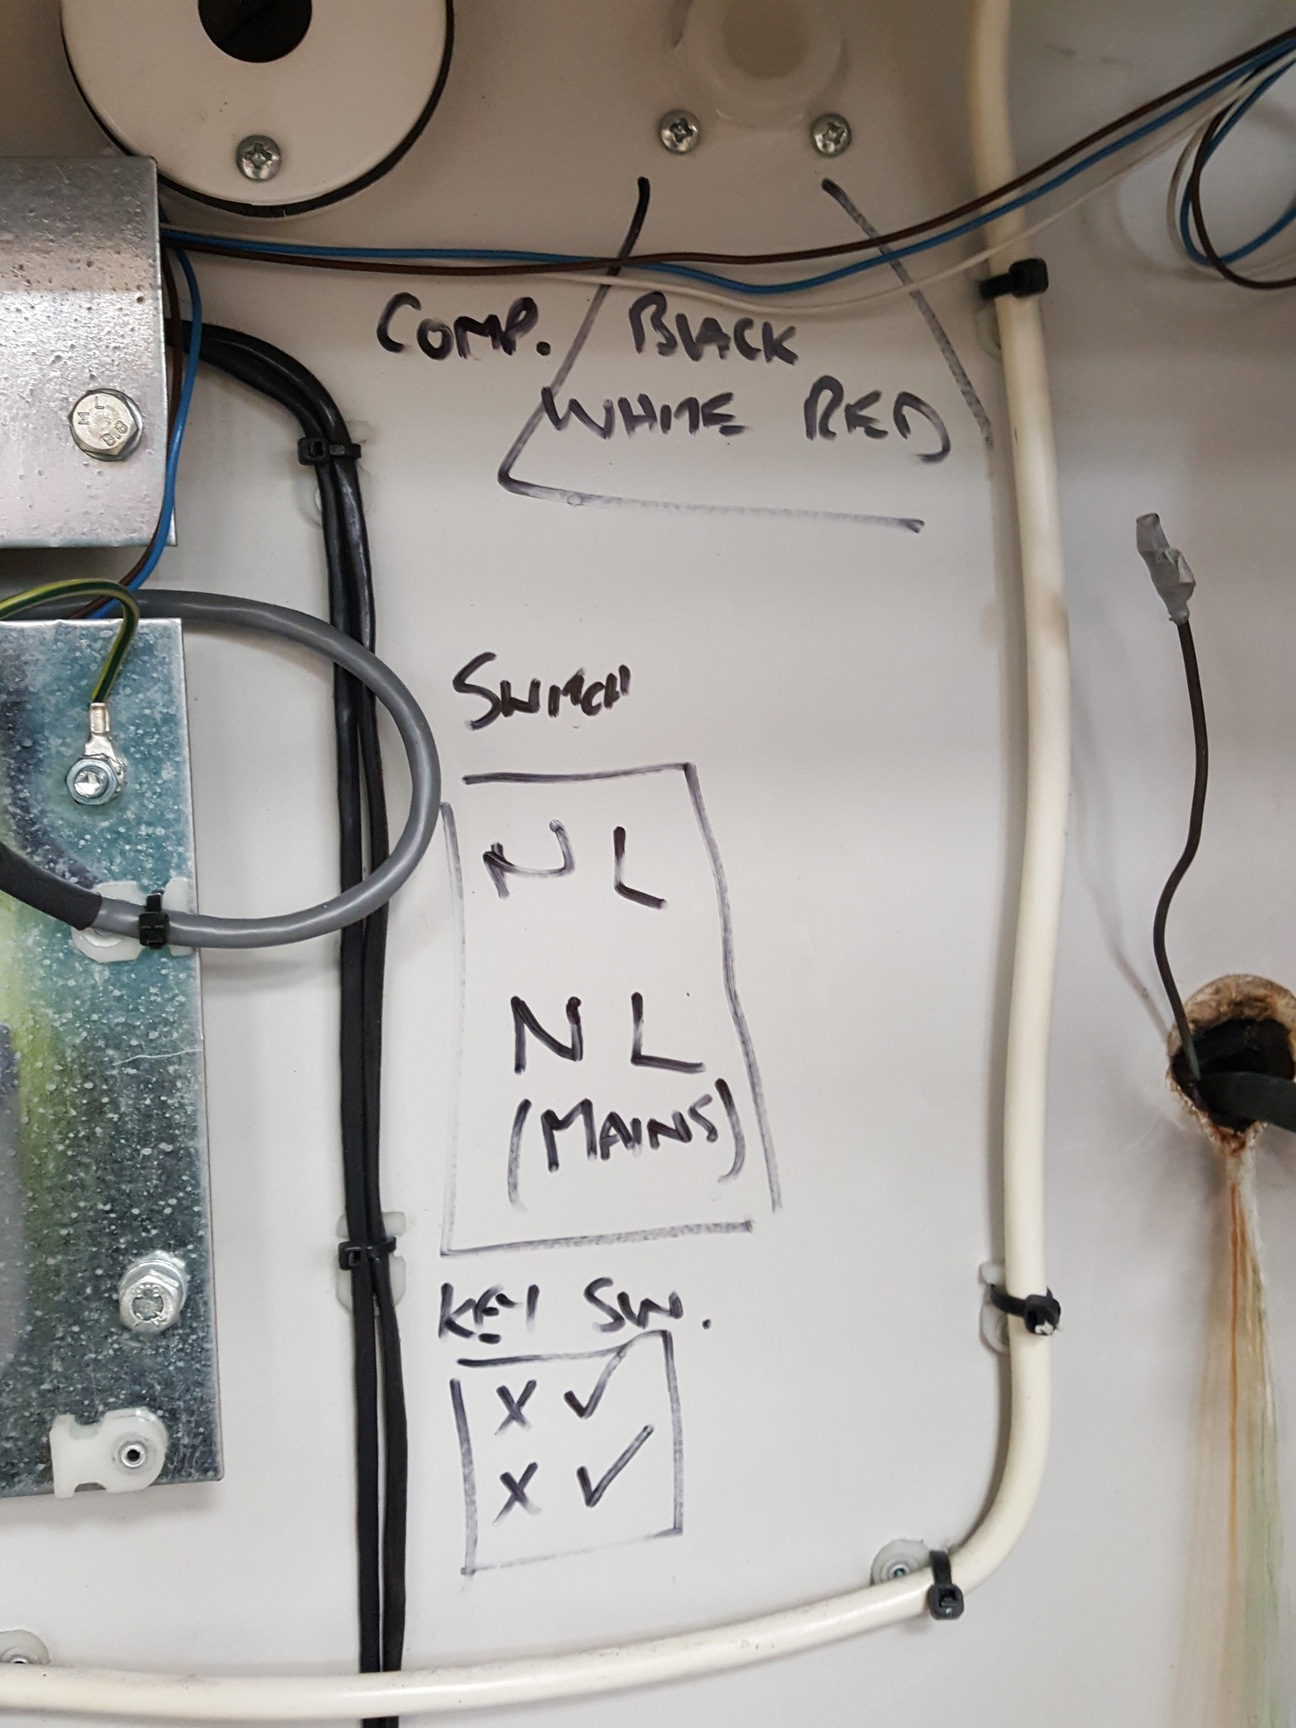 COMP. BLACK
WHITE RED
SWITCH
N L
N L
(MAINS)
KEY SW.
X ✓
X ✓
8.8